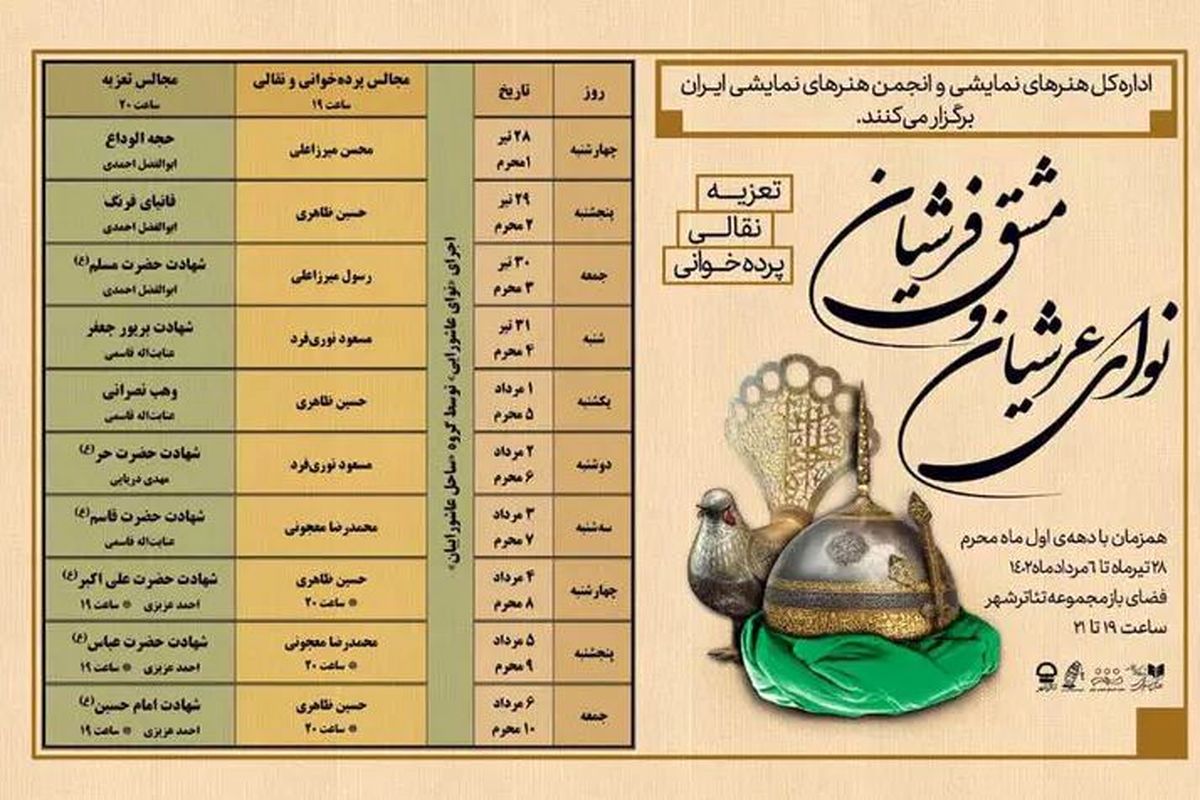 اداره‌کل هنرهای نمایشی و انجمن هنرهای نمایشی ایران
برگزار می‌کنند.
مشق فرشیان
و
نوای عرشیان
تعزیه
نقالی
پرده‌خوانی
همزمان با دهه‌ی اول ماه محرم
۲۸ تیرماه تا ۶ مردادماه ۱۴۰۲
فضای باز مجموعه تئاتر شهر
ساعت ۱۹ تا ۲۱
روز
تاریخ
مجالس پرده‌خوانی و نقالی
ساعت ۱۹
مجالس تعزیه
ساعت ۲۰
اجرای «نوای عاشورایی» توسط گروه «ساحل عاشوراییان»
چهارشنبه
۲۸ تیر
۱محرم
محسن میرزاعلی
حجه الوداع
ابوالفضل احمدی
پنجشنبه
۲۹ تیر
۲ محرم
حسین طاهری
قانیای فرنگ
ابوالفضل احمدی
جمعه
۳۰ تیر
۳ محرم
رسول میرزاعلی
شهادت حضرت مسلم(ع)
ابوالفضل احمدی
شنبه
۳۱ تیر
۴ محرم
مسعود نوری‌فرد
شهادت بریور جعفر
عنایت‌اله قاسمی
یکشنبه
۱ مرداد
۵ محرم
حسین طاهری
وهب نصرانی
عنایت‌اله قاسمی
دوشنبه
۲ مرداد
۶ محرم
مسعود نوری‌فرد
شهادت حضرت حر(ع)
مهدی دریایی
سه‌شنبه
۳ مرداد
۷ محرم
محمدرضا معجونی
شهادت حضرت قاسم(ع)
عنایت‌اله قاسمی
چهارشنبه
۴ مرداد
۸ محرم
حسین طاهری
* ساعت ۲۰
شهادت حضرت علی اکبر(ع)
احمد عزیزی * ساعت ۱۹
پنجشنبه
۵ مرداد
۹ محرم
محمدرضا معجونی
* ساعت ۲۰
شهادت حضرت عباس(ع)
احمد عزیزی * ساعت ۱۹
جمعه
۶ مرداد
۱۰ محرم
حسین طاهری
* ساعت ۲۰
شهادت امام حسین(ع)
احمد عزیزی * ساعت ۱۹